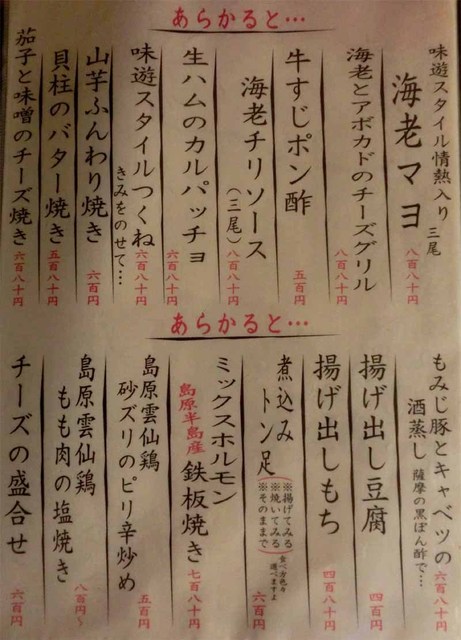 あらかると…
味遊スタイル情熱入り
海老マヨ
三尾
八百八十円
海老とアボカドのチーズグリル
八百八十円
牛すじポン酢
五百円
海老チリソース
（三尾）
八百八十円
生ハムのカルパッチョ
六百八十円
味遊スタイルつくね
きみをのせて…
四百八十円
山芋ふんわり焼き
六百円
貝柱のバター焼き
五百八十円
茄子と味噌のチーズ焼き
六百八十円
あらかると…
もみじ豚とキャベツの
酒蒸し
薩摩の黒ぽん酢で…
六百八十円
揚げ出し豆腐
四百円
揚げ出しもち
四百八十円
煮込み
トン足
※揚げてみる
※焼いてみる
※そのままで
食べ方色々
選べますよ
六百円
ミックスホルモン
島原半島産
鉄板焼き
七百八十円
島原雲仙鶏
砂ズリのピリ辛炒め
五百円
島原雲仙鶏
もも肉の塩焼き
八百円～
チーズの盛合せ
六百円